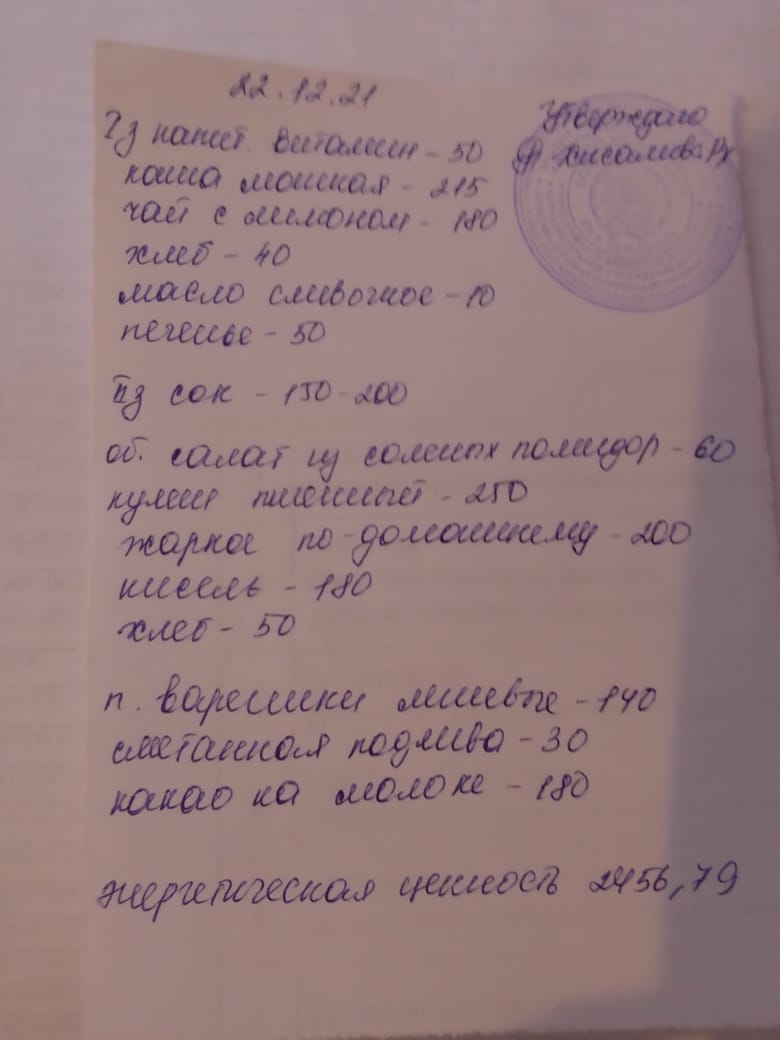 22.12.21
Утверждаю
Iз напит. витамин - 50
каша манная - 215
чай с лимоном - 180
хлеб - 40
масло сливочное - 10
печенье - 50
IIз сок - 150-200
об. салат из соленых помидор - 60
кулеш пшенный - 250
жаркое по-домашнему - 200
кисель - 180
хлеб - 50
п. вареники ленивые - 140
сметанная подлива - 30
какао на молоке - 180
энергетическая ценность 2456,79